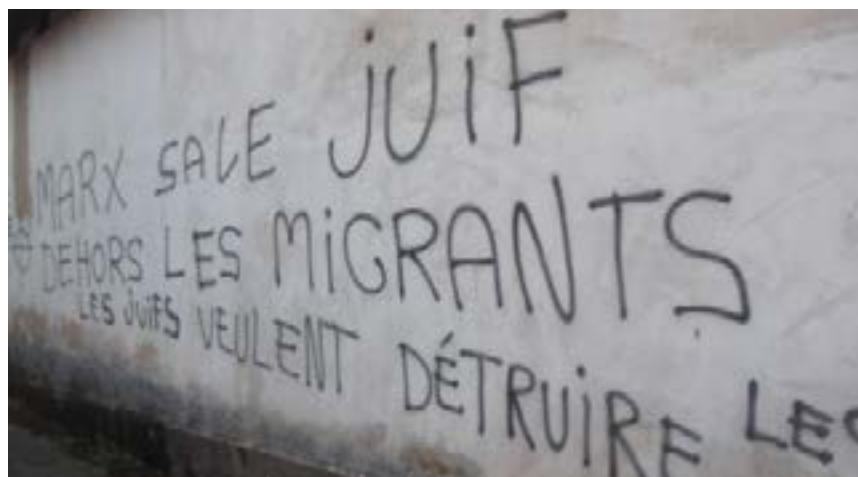 MARX SALE JUIF
DEHORS LES MIGRANTS
LES JUIFS VEULENT DÉTRUIRE LES